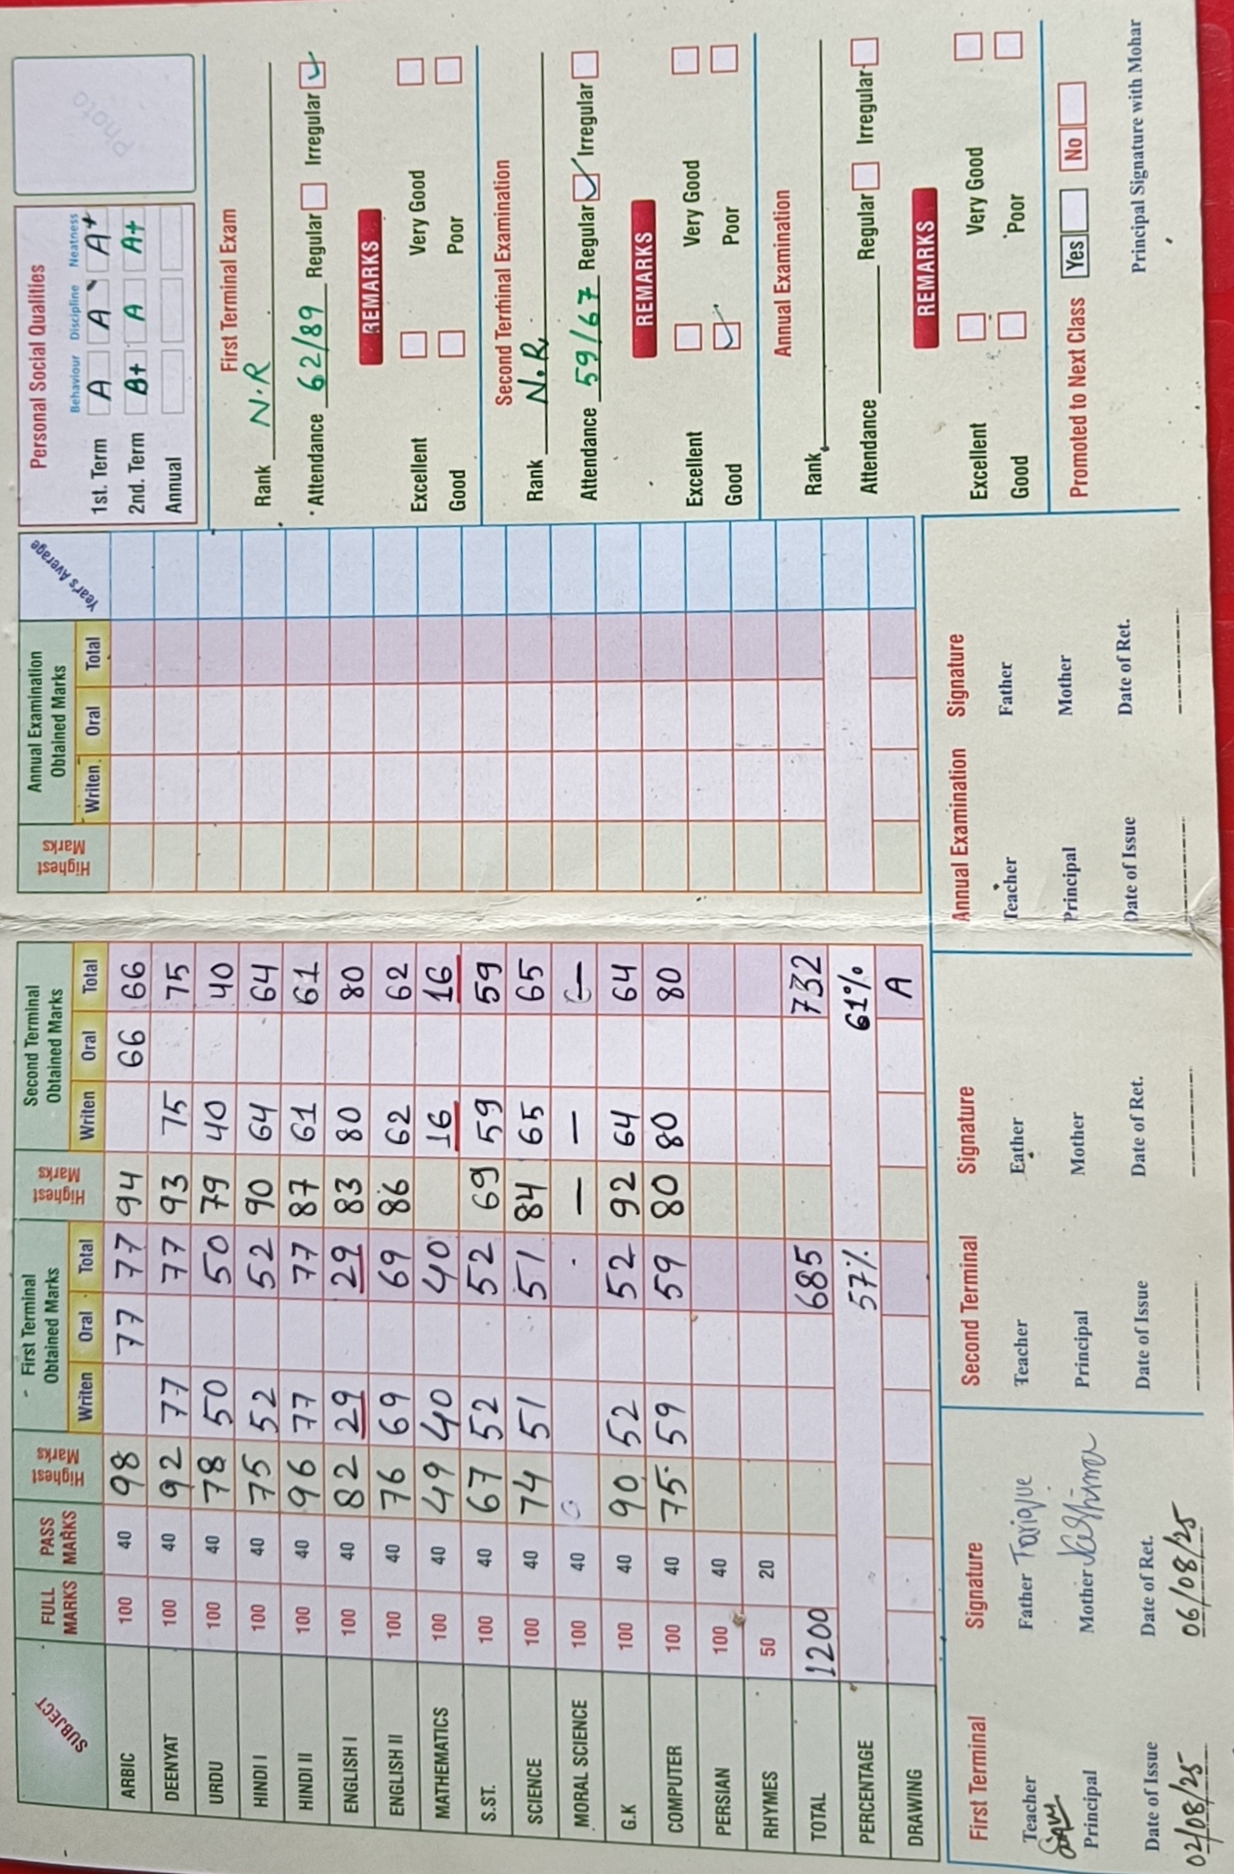 SUBJECT FULL MARKS PASS MARKS Highest Marks First Terminal Obtained Marks Writen Oral Total Highest Marks Second Terminal Obtained Marks Writen Oral Total Highest Marks Annual Examination Obtained Marks Writen Oral Total Year's Average
ARBIC 100 40 98 77 77 94 66 66
DEENYAT 100 40 92 77 77 93 75 75
URDU 100 40 78 50 50 79 40 40
HINDI I 100 40 75 52 52 90 64 64
HINDI II 100 40 96 77 77 87 61 61
ENGLISH I 100 40 82 29 29 83 80 80
ENGLISH II 100 40 76 69 69 86 62 62
MATHEMATICS 100 40 49 40 40 16 16
S.ST. 100 40 67 52 52 69 59 59
SCIENCE 100 40 74 51 51 84 65 65
MORAL SCIENCE 100 40 — — —
G.K 100 40 90 52 52 92 64 64
COMPUTER 100 40 75 59 59 80 80 80
PERSIAN 100 40
RHYMES 50 20
TOTAL 1200 685 732
PERCENTAGE 57% 61%
DRAWING A
First Terminal Signature
Teacher Father Tarique
Principal Mother
Date of Issue Date of Ret.
02/08/25 06/08/25
Second Terminal Signature
Teacher Father
Principal Mother
Date of Issue Date of Ret.
Annual Examination Signature
Teacher Father
Principal Mother
Date of Issue Date of Ret.
Personal Social Qualities
Behaviour Discipline Neatness
1st. Term A A A+
2nd. Term B+ A A+
Annual
Photo
First Terminal Exam
Rank N.R
Attendance 62/89 Regular Irregular
REMARKS
Excellent Very Good
Good Poor
Second Terminal Examination
Rank N.R.
Attendance 59/67 Regular Irregular
REMARKS
Excellent Very Good
Good Poor
Annual Examination
Rank
Attendance Regular Irregular
REMARKS
Excellent Very Good
Good Poor
Promoted to Next Class Yes No
Principal Signature with Mohar